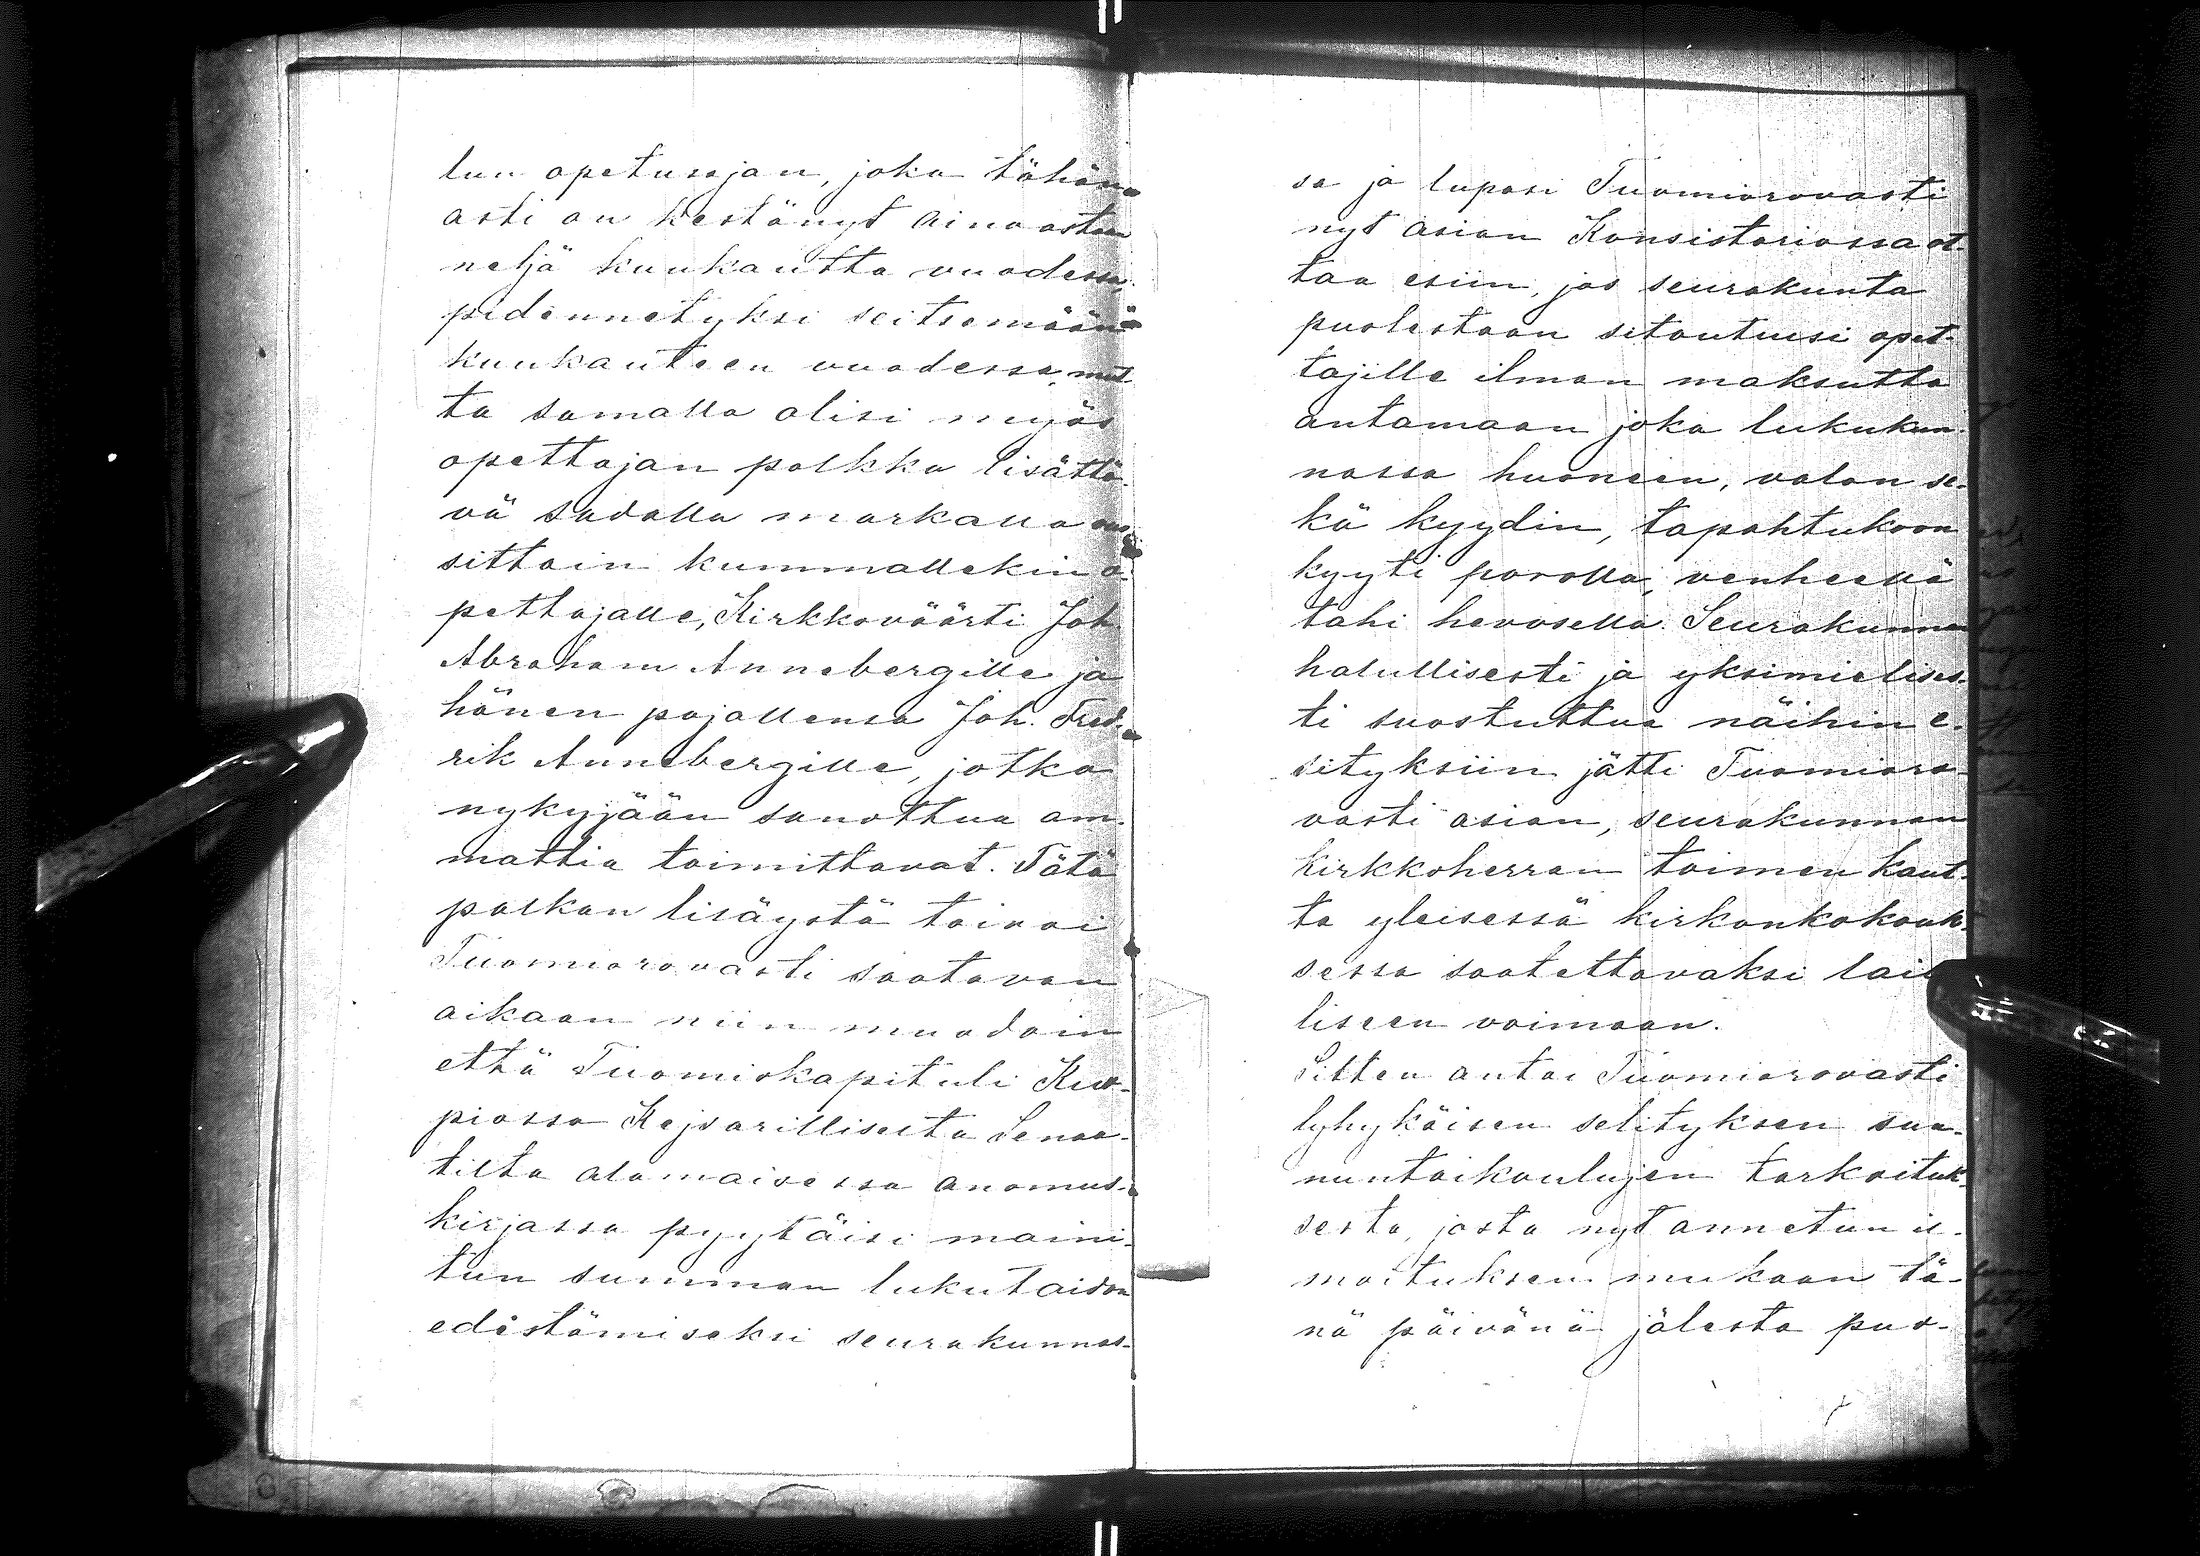 lun opetusajan, joka tähän
asti on kestänyt ainoastaan
neljä kuukautta vuodessa,
pidennetyksi seitsemään
kuukauteen vuodessa, mut
ta samalla olisi myös
opettajan palkka lisättä-
vä sadalla markalla vuo
sittain kummallekin o-
pettajalle, Kirkkoväärti Joh
Abraham Annebergille ja
hänen pojallensa Joh. Fred-
rik Annebergille, jotka
nykyjään sanottua am-
mattia toimittavat. Tätä
palkan lisäystä toivoi
Tuomiorovasti saatavan
aikaan niin muodoin
että Tuomiokapituli Kuo-
piossa Kejsarilliselta Senaa-
tilta alamaisessa anomus-
kirjassa pyytäisi maini-
tun summan lukutaidon
edistämiseksi seurakunnas-
sa ja lupasi Tuomiorovasti
nyt asian Konsistoriossa ot-
taa esiin, jos seurakunta
puolestaan sitoutuisi opet-
tajille ilman maksutta
antamaan joka lukukun-
nassa huoneen, valon se-
kä kyydin, tapahtukoon
kyyti porolla, venheellä
tahi hevosella. Seurakunnan
halullisesti ja yksimielises-
ti suostuttua näihin e-
sityksiin jätti Tuomioro-
vasti asian, seurakunnan
kirkkoherran toimen kaut-
ta yleisessä kirkonkokouk-
sessa saatettavaksi lail
liseen voimaan.
Sitten antoi Tuomiorovasti
lyhykäisen selityksen sun-
nuntaikoulujen tarkoituk-
sesta, josta nyt annetun il-
moituksen mukaan tä-
nä päivänä jälestä puo-